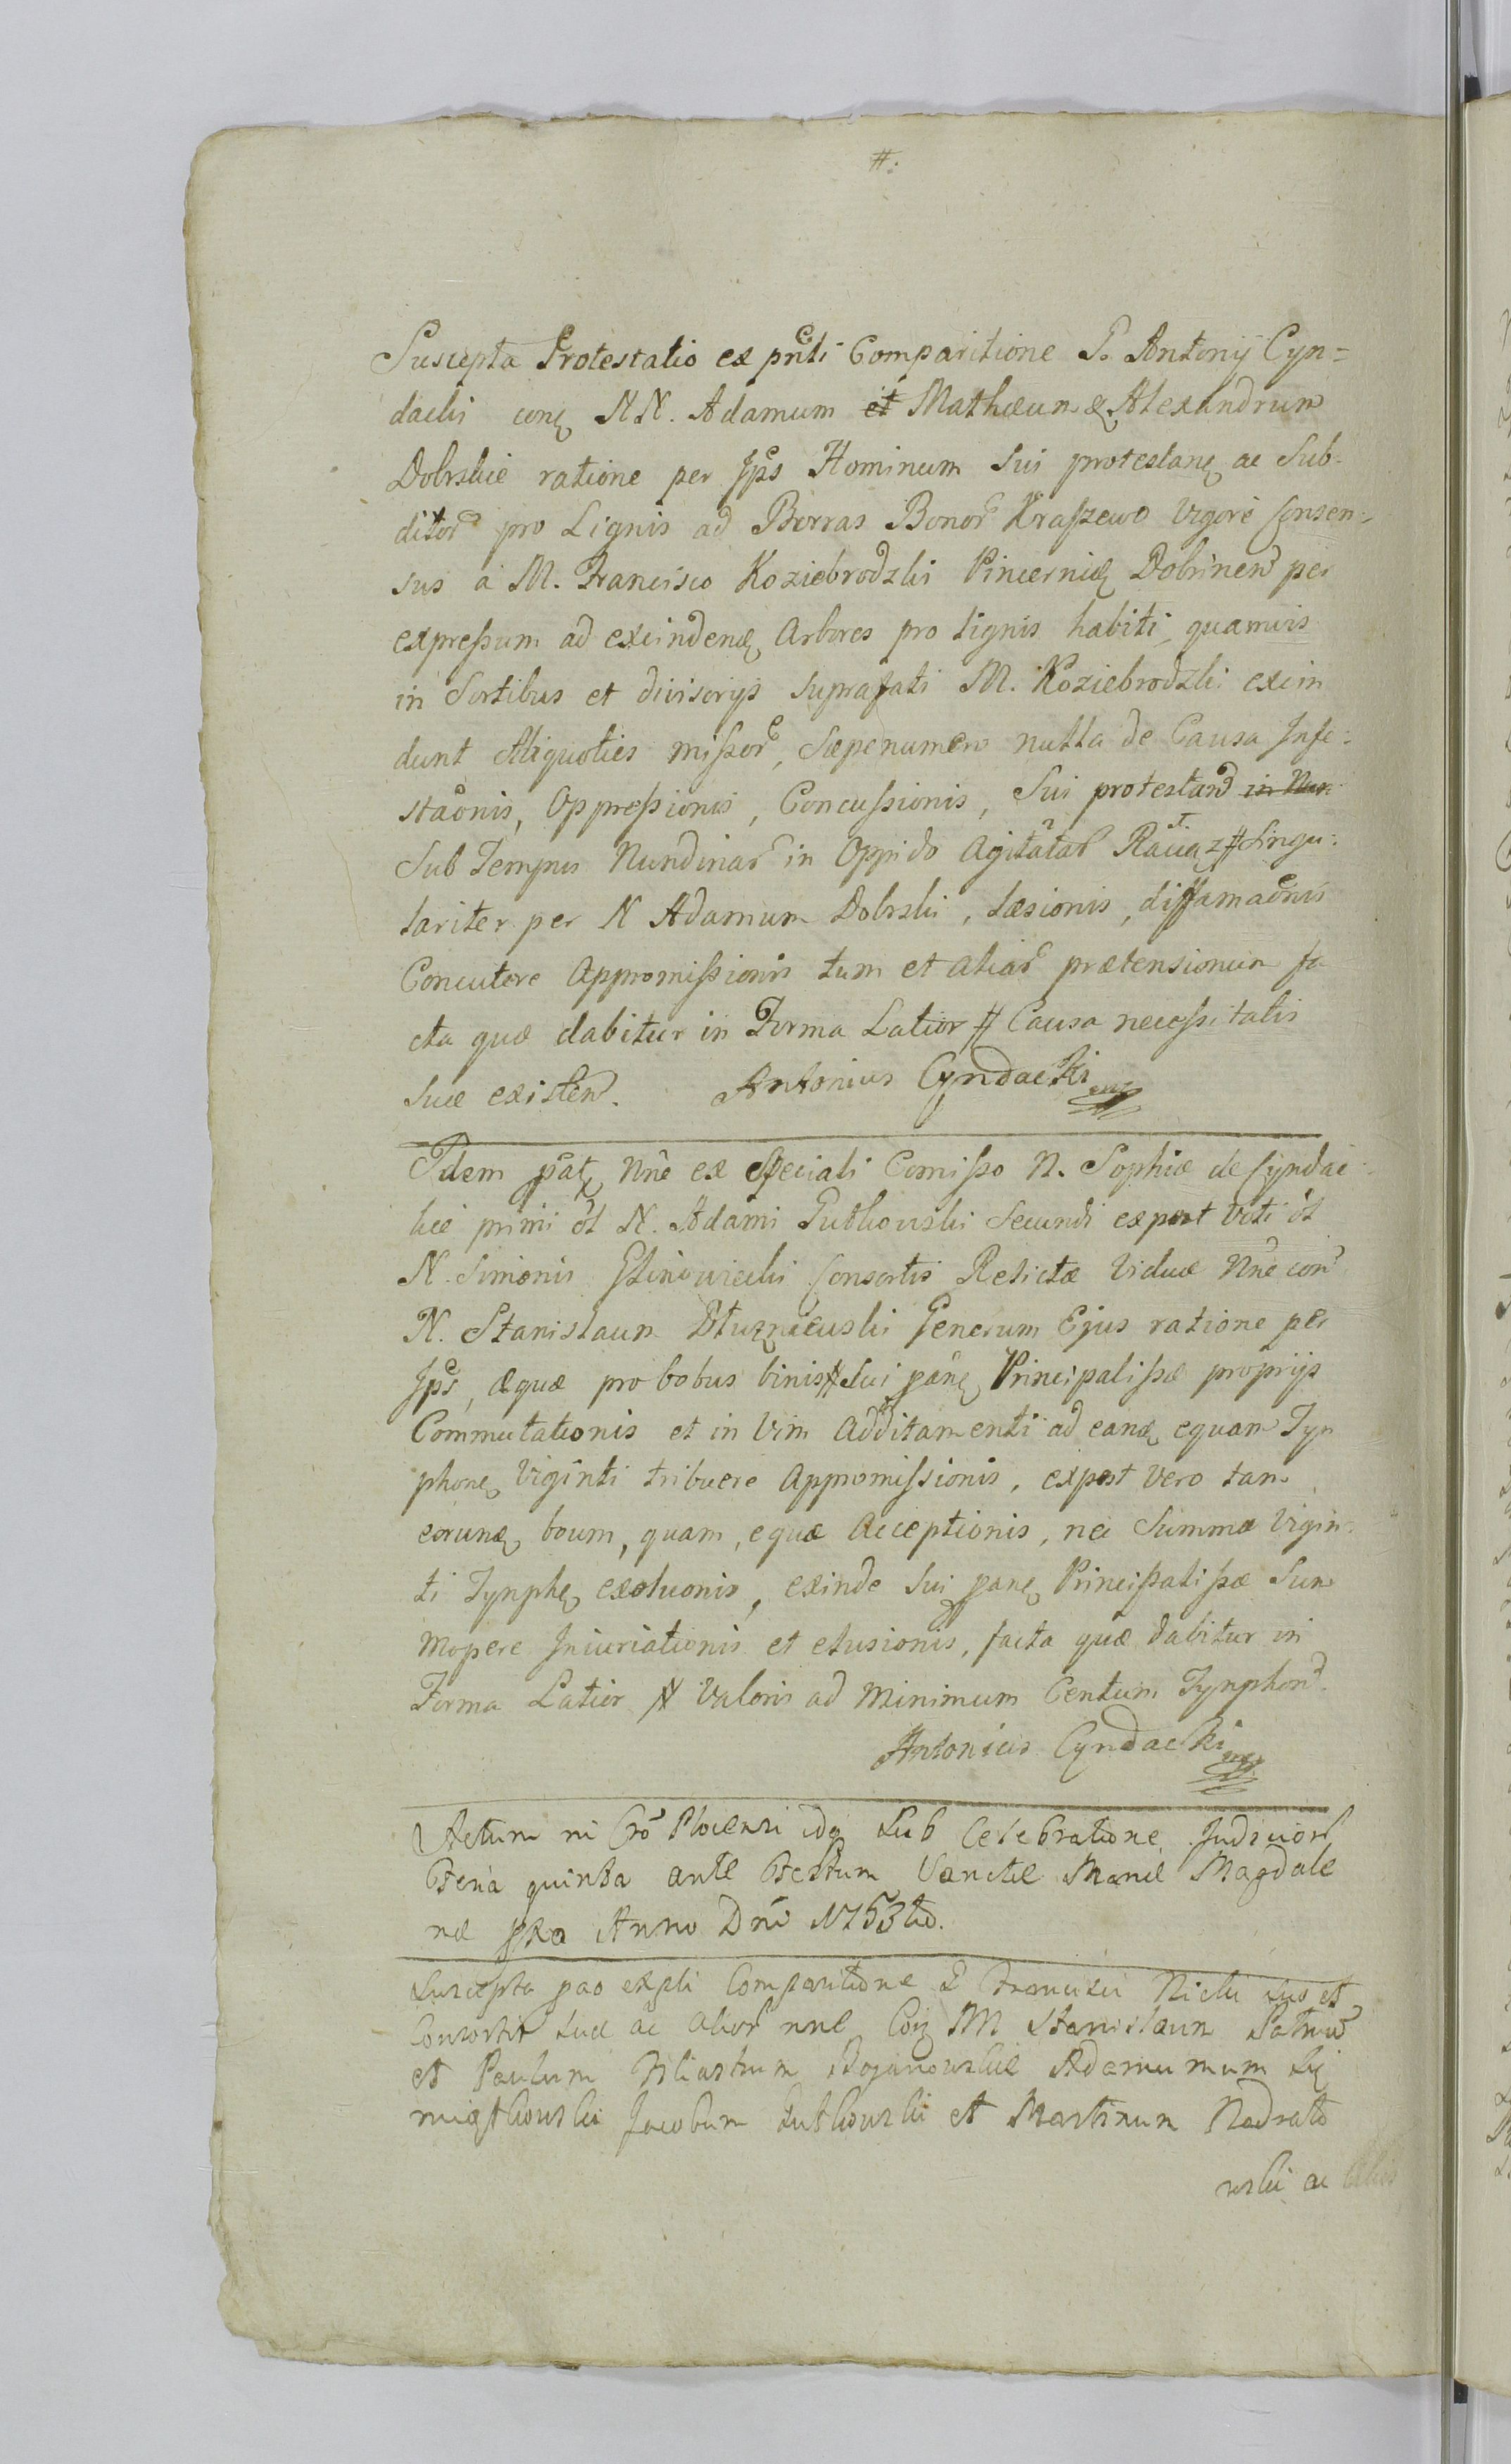 #:
Suscepta Protestatio ex pnti Comparitione G. Antonij Cyn=
dacki conq NN. Adamum et Mathæum & Alexandrum
Dobrskie ratione per Jps Hominum Sui protestanq ac Sub-
ditor pro Lignis ad Borras Bonor Kraszewo Vigore Consen-
sus a M. Francisco Koziebrodzki Pincernæ Dobrinen per
expressum ad exindend Arbores pro lignis habiti, quamvis
in Sortibus et divisorijs suprafati M. Koziebrodzki exin
dunt Aliquoties missor, Sæpenumero nulla de Causa Infe-
staonis, Oppressionis, Concussionis, Sui protestan in Nun
Sub Tempus Nundinar in Oppido Agitatar Raciaz # Singu-
lariter per N Adamum Dobrski, Læsionis, diffamaonis
Concutere Appromissionis tum et aliar prætensionum fa
cta quæ dabitur in Forma Latior # Causa necessitatis
suæ existen. Antonius Cyndacki mp
Idem pat Nne ex Speciali Comisso N. Sophiæ de Cyndac
kie primi et N. Adami Gutkowski Secundi expost Voti et
N. Simonis Glinowiecki Consortis Relictæ Viduæ Nne con
N. Stanislaum Dluzniewski Generum Ejus ratione per
Jps, æquæ pro bobus binis # Sui panq Principalissæ proprijs
Commutationis et in Vim Additamenti ad eand equam Tyn
phonq Viginti tribuere Appromissionis, expost Vero tam
eorund boum, quam, equæ Acceptionis, nec Summæ Vigin-
ti Tynphq exoluonis, exinde Sui panq Principalissæ Sum
mopere Iniuriationis et elusionis, facta quæ dabitur in
Forma Latior # Valoris ad minimum Centum Tynphon
Antonius Cyndacki mp
Actum in Cro Plocensi idq Sub Celebratione Judicior
Feria quinta ante Festum Sanctæ Mariæ Magdale
næ pxa Anno Dni 1753tio.
Suscepta pao expli Comparitione G Francisci Nicki suo et
Consortis suæ ac alior nne Conq M Stanislaum Patrem
et Paulum Filiastrum Bojanowskie Adamum
Jacobum Gutkowski et Martinum Nadrato
wski ac Alios